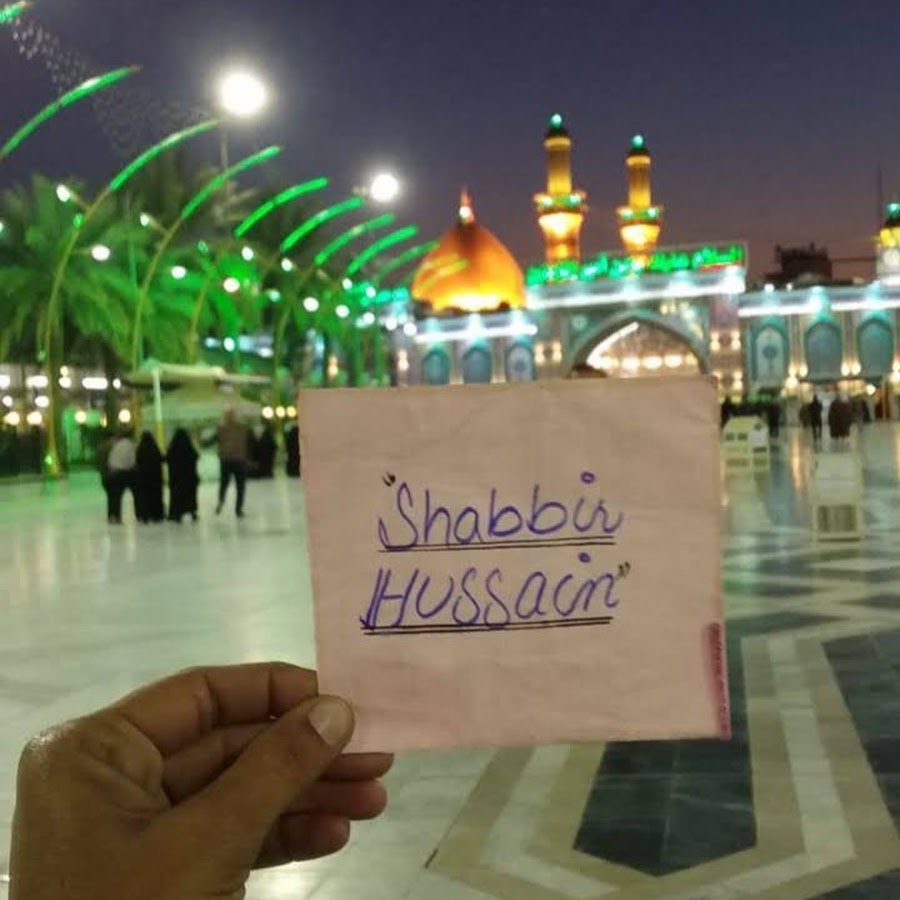 "Shabbir
HUSSain"